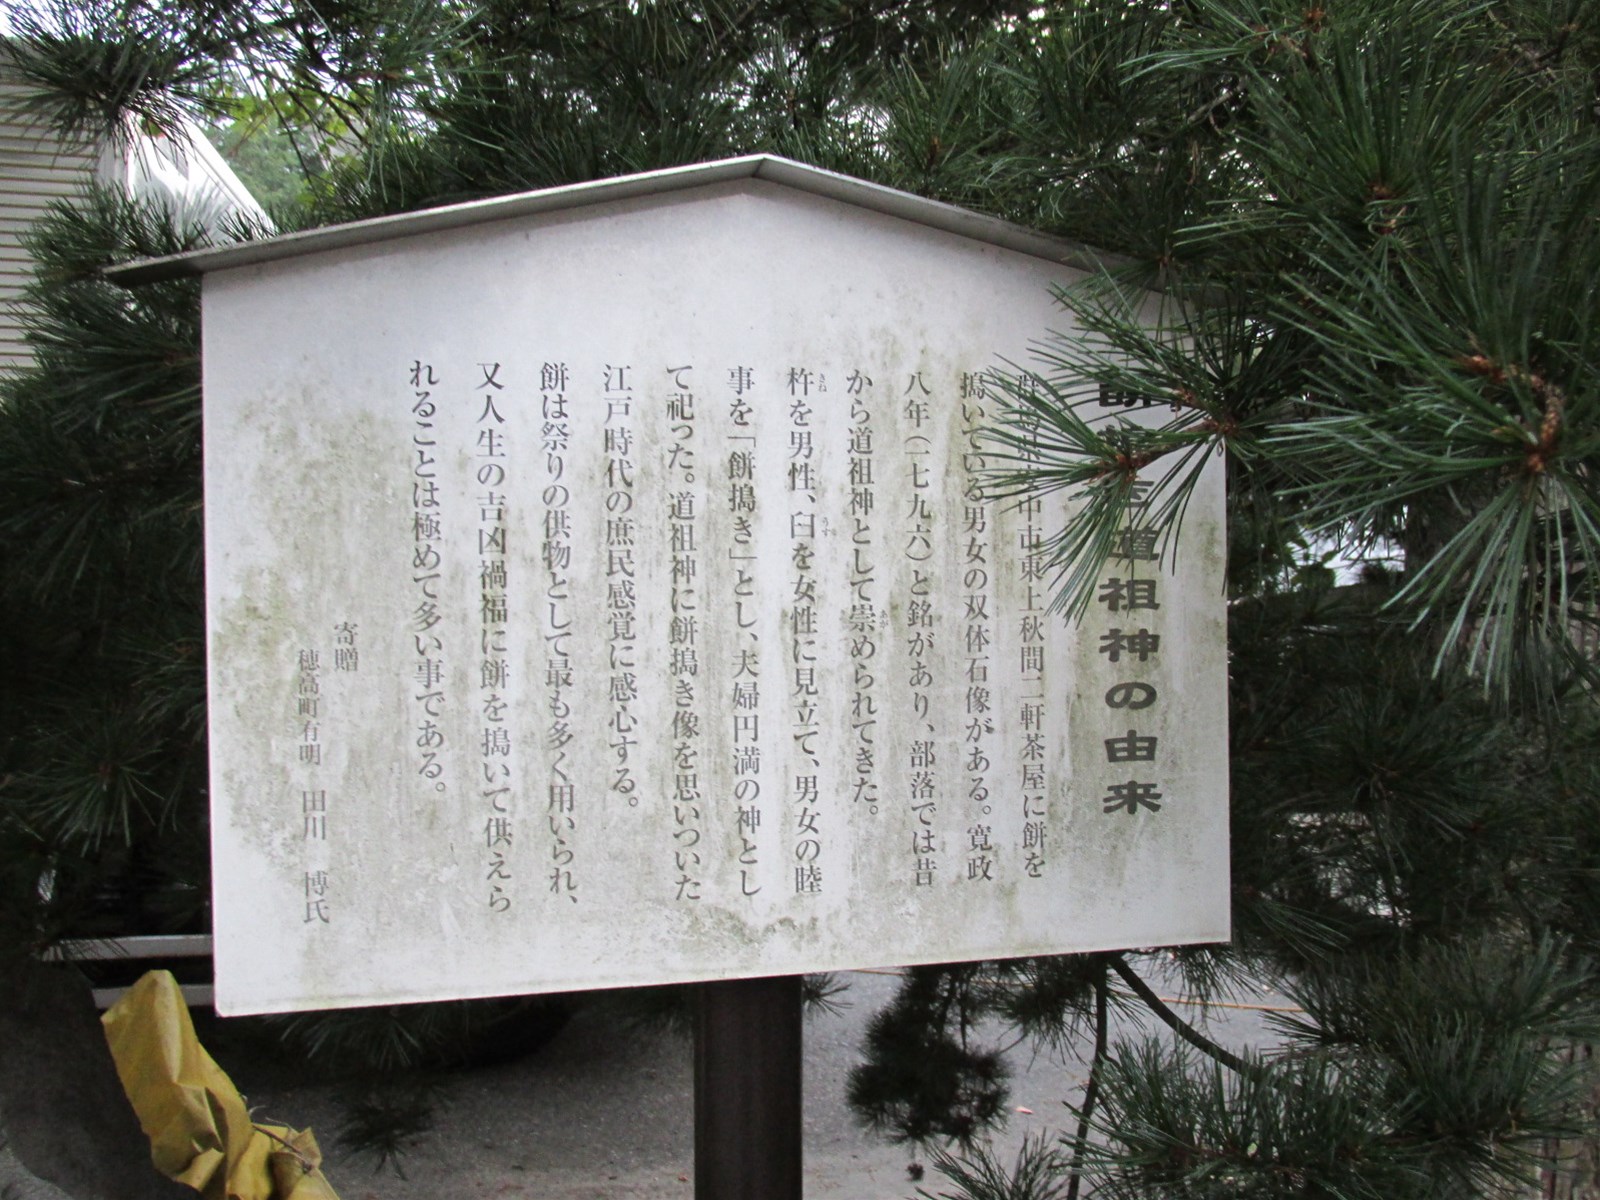 道祖神の由来
中市東上秋間二軒茶屋に餅を
搗いている男女の双体石像がある。寛政
八年(一七九六)と銘があり、部落では昔
から道祖神として崇められてきた。
杵を男性、臼を女性に見立て、男女の睦
事を「餅搗き」とし、夫婦円満の神とし
て祀った。道祖神に餅搗き像を思いついた
江戸時代の庶民感覚に感心する。
餅は祭りの供物として最も多く用いられ、
又人生の吉凶禍福に餅を搗いて供えら
れることは極めて多い事である。
寄贈
穂高町有明 田川 博氏